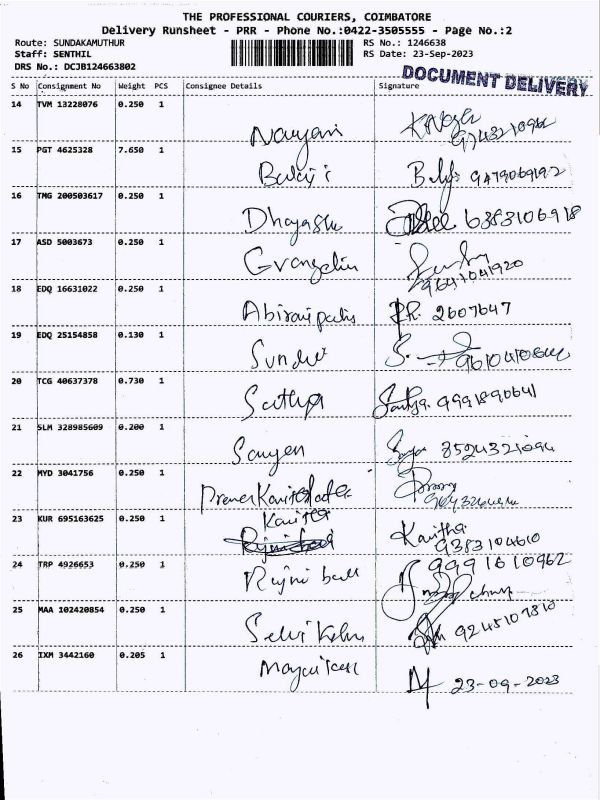 THE PROFESSIONAL COURIERS, COIMBATORE
Delivery Runsheet - PRR - Phone No.:0422-3505555 - Page No.:2
Route: SUNDAKAMUTHUR RS No.: 1246638
Staff: SENTHIL RS Date: 23-Sep-2023
DRS No.: DCJB124663802
DOCUMENT DELIVERY
S No Consignment No Weight PCS Consignee Details Signature
14 TVM 13228076 0.250 1
Narayani
15 PGT 4625328 7.650 1
Balaji
16 TMG 200503617 0.250 1
6383106918
17 ASD 5003673 0.250 1
Evangelin
18 EDQ 16631022 0.250 1
2607647
19 EDQ 25154858 0.130 1
20 TCG 40637378 0.730 1
Sathya 9991890641
21 SLM 328985609 0.200 1
8524321094
22 MYD 3041756 0.250 1
23 KUR 695163625 0.250 1
Kavitha Kavitha
9383104610
24 TRP 4926653 0.250 1
9991610962
25 MAA 102420854 0.250 1
9245107810
26 IXM 3442160 0.205 1
23-09-2023